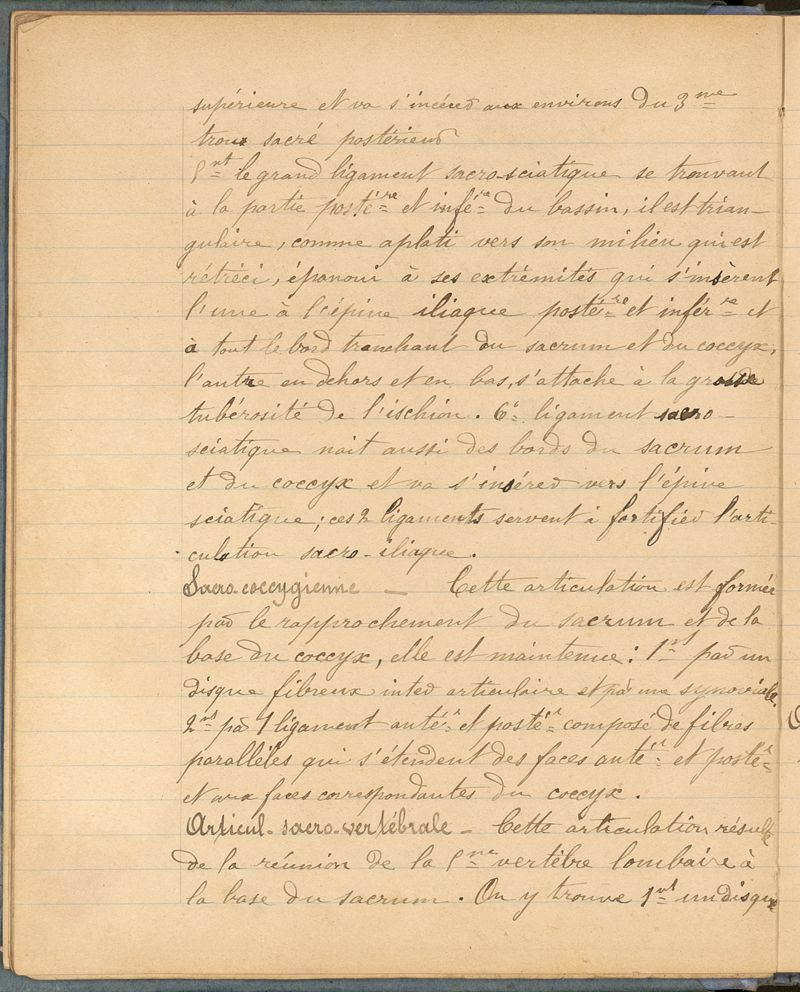 supérieure et va s'incérer aux environs du 3me
trou sacré postérieur
5nt le grand ligament sacro-sciatique se trouvant
à la partie postére et infére du bassin, il est trian-
gulaire, comme aplati vers son milieu qui est
rétréci, épanoui à ses extrémités qui s'insèrent
l'une à l'épine iliaque postére et infére et
à tout le bord tranchant du sacrum et du coccyx,
l'autre en dehors et en bas, s'attache à la grosse
tubérosité de l'ischion. 6° ligament sacro-
sciatique nait aussi des bords du sacrum
et du coccyx et va s'insérer vers l'épine
sciatique; ces 2 ligaments servent à fortifier l'arti-
culation sacro-iliaque.
Sacro-coccygienne — Cette articulation est formée
par le rapprochement du sacrum et de la
base du coccyx, elle est maintenue: 1nt par un
disque fibreux inter articulaire et par une synoviale.
2nt par 1 ligament antér et postér composé de fibres
parallèles qui s'étendent des faces antér et postér
et aux faces correspondantes du coccyx.
Articul-sacro-vertébrale - Cette articulation résulte
de la réunion de la 5me vertèbre lombaire à
la base du sacrum. On y trouve 1nt un disque